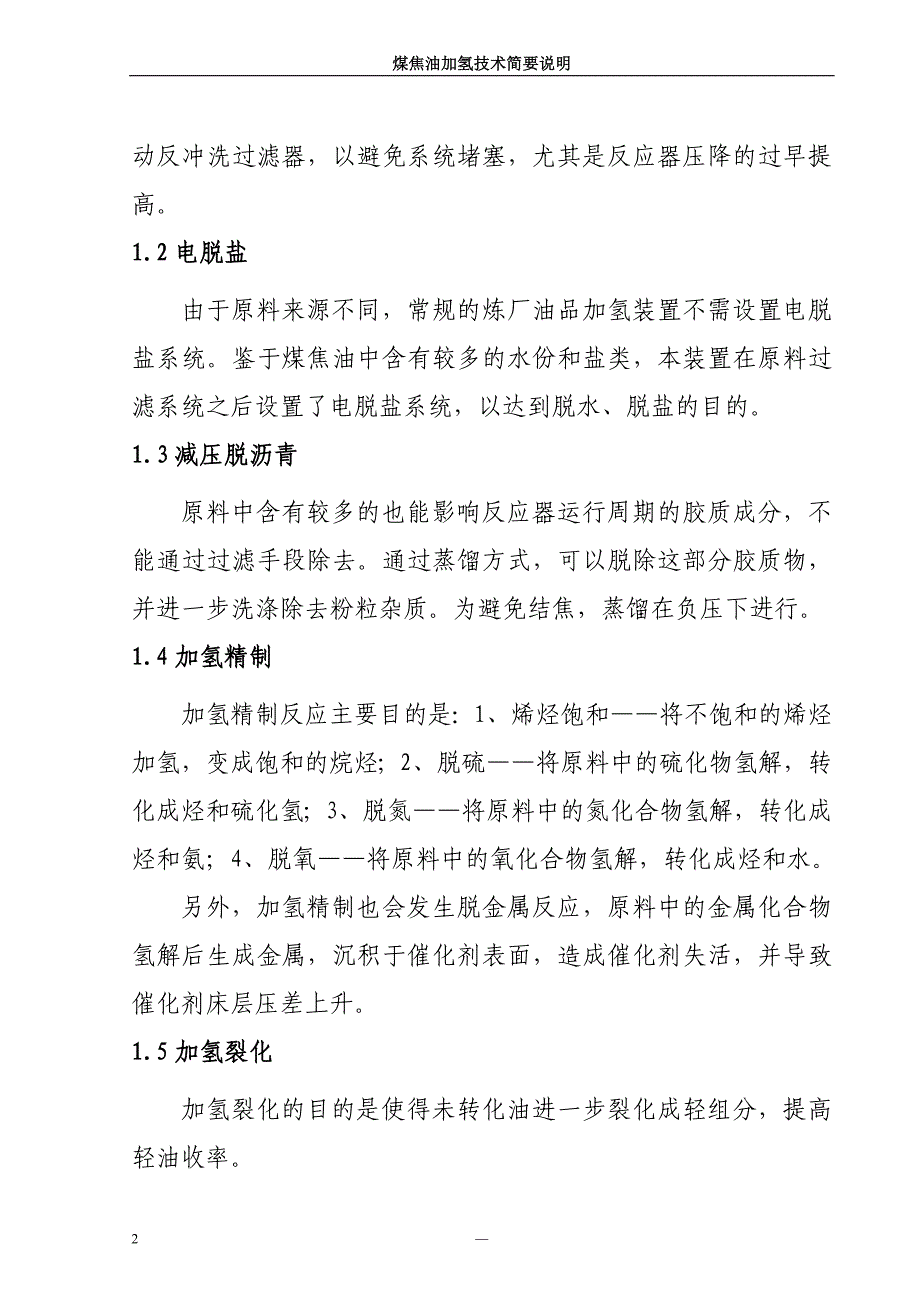 煤焦油加氢技术简要说明
动反冲洗过滤器，以避免系统堵塞，尤其是反应器压降的过早提
高。
1.2 电脱盐
由于原料来源不同，常规的炼厂油品加氢装置不需设置电脱
盐系统。鉴于煤焦油中含有较多的水份和盐类，本装置在原料过
滤系统之后设置了电脱盐系统，以达到脱水、脱盐的目的。
1.3 减压脱沥青
原料中含有较多的也能影响反应器运行周期的胶质成分，不
能通过过滤手段除去。通过蒸馏方式，可以脱除这部分胶质物，
并进一步洗涤除去粉粒杂质。为避免结焦，蒸馏在负压下进行。
1.4 加氢精制
加氢精制反应主要目的是：1、烯烃饱和——将不饱和的烯烃
加氢，变成饱和的烷烃；2、脱硫——将原料中的硫化物氢解，转
化成烃和硫化氢；3、脱氮——将原料中的氮化合物氢解，转化成
烃和氨；4、脱氧——将原料中的氧化合物氢解，转化成烃和水。
另外，加氢精制也会发生脱金属反应，原料中的金属化合物
氢解后生成金属，沉积于催化剂表面，造成催化剂失活，并导致
催化剂床层压差上升。
1.5 加氢裂化
加氢裂化的目的是使得未转化油进一步裂化成轻组分，提高
轻油收率。
2 —